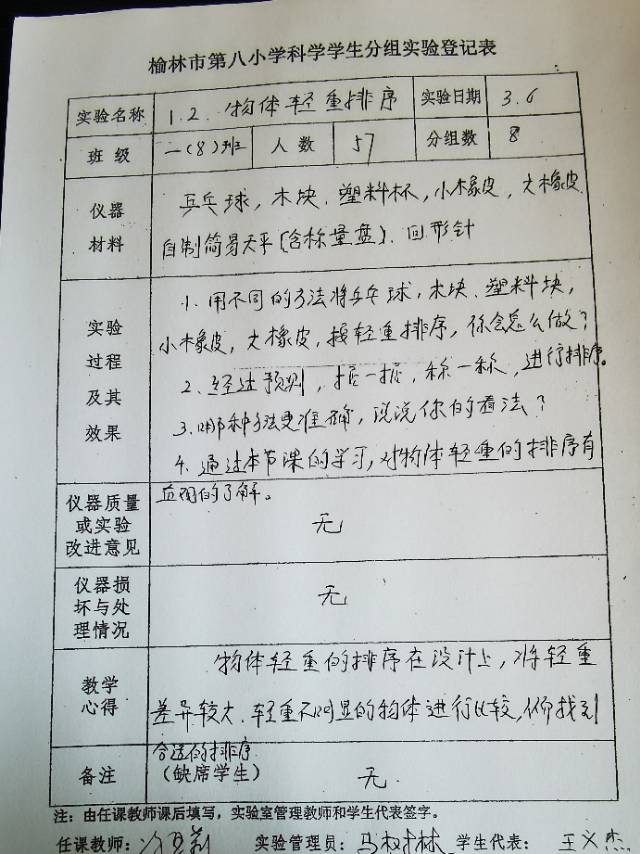 榆林市第八小学科学学生分组实验登记表
实验名称 1.2. 物体轻重排序 实验日期 3.6
班 级 一(8)班 人 数 57 分组数 8
仪器
材料
乒乓球，木块、塑料杯，小橡皮，大橡皮
自制简易天平(含称量盘)、回形针
实验
过程
及其
效果
1. 用不同的方法将乒乓球，木块、塑料块，
小橡皮，大橡皮，按轻重排序，你会怎么做？
2. 经过预测，掂一掂，称一称，进行排序。
3. 哪种方法更准确，说说你的看法？
4. 通过本节课的学习，对物体轻重的排序有
的了解。
仪器质量
或实验
改进意见
无
仪器损
坏与处
理情况
无
教学
心得
物体轻重的排序在设计上，将轻重
差异较大、轻重不明显的物体进行比较，找到
合适的排序
备注 （缺席学生） 无.
注：由任课教师课后填写，实验室管理教师和学生代表签字。
任课教师： 实验管理员：马 林 学生代表：王义杰